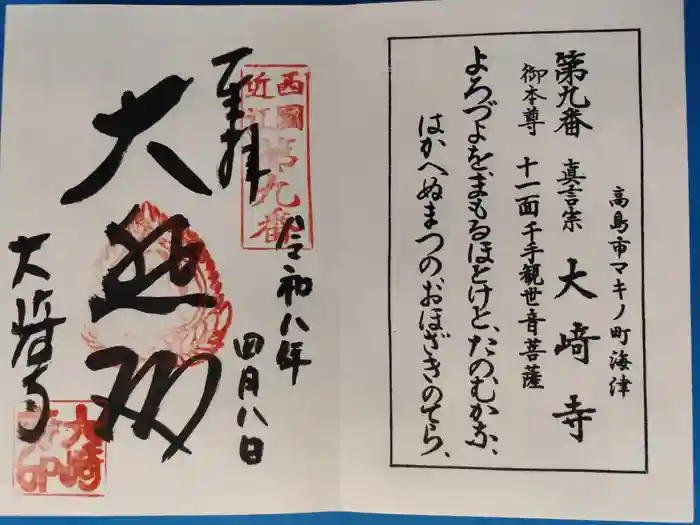 高島市マキノ町海津
第九番 真言宗 大﨑寺
御本尊 十一面千手観世音菩薩
よろづよをまもるほとけと、たのむかな、
はかへぬまつのおほざきのてら、
西國
近江
第九番
奉拝
令和八年
四月八日
大悲閣
大﨑寺
大﨑
寺印